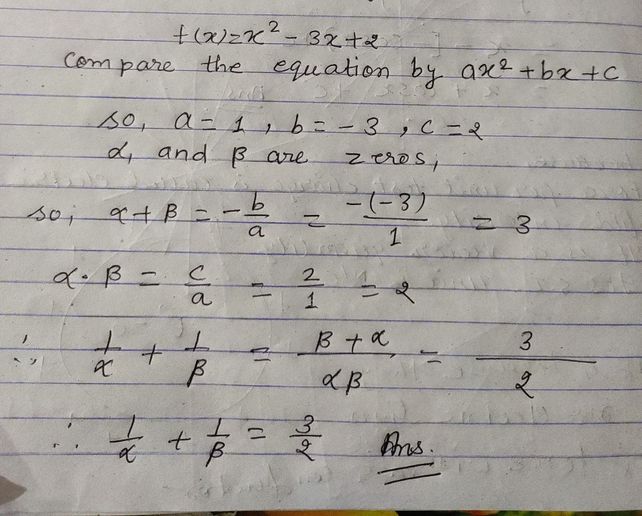 f(x)=x² - 3x+2
Compare the equation by ax²+bx+c
so, a = 1 , b = -3 , c = 2
α, and β are zeros,
so, α+β = -b/a = -(-3)/1 = 3
α·β = c/a = 2/1 = 2
∴ 1/α + 1/β = β+α/αβ = 3/2
∴ 1/α + 1/β = 3/2 Ans.